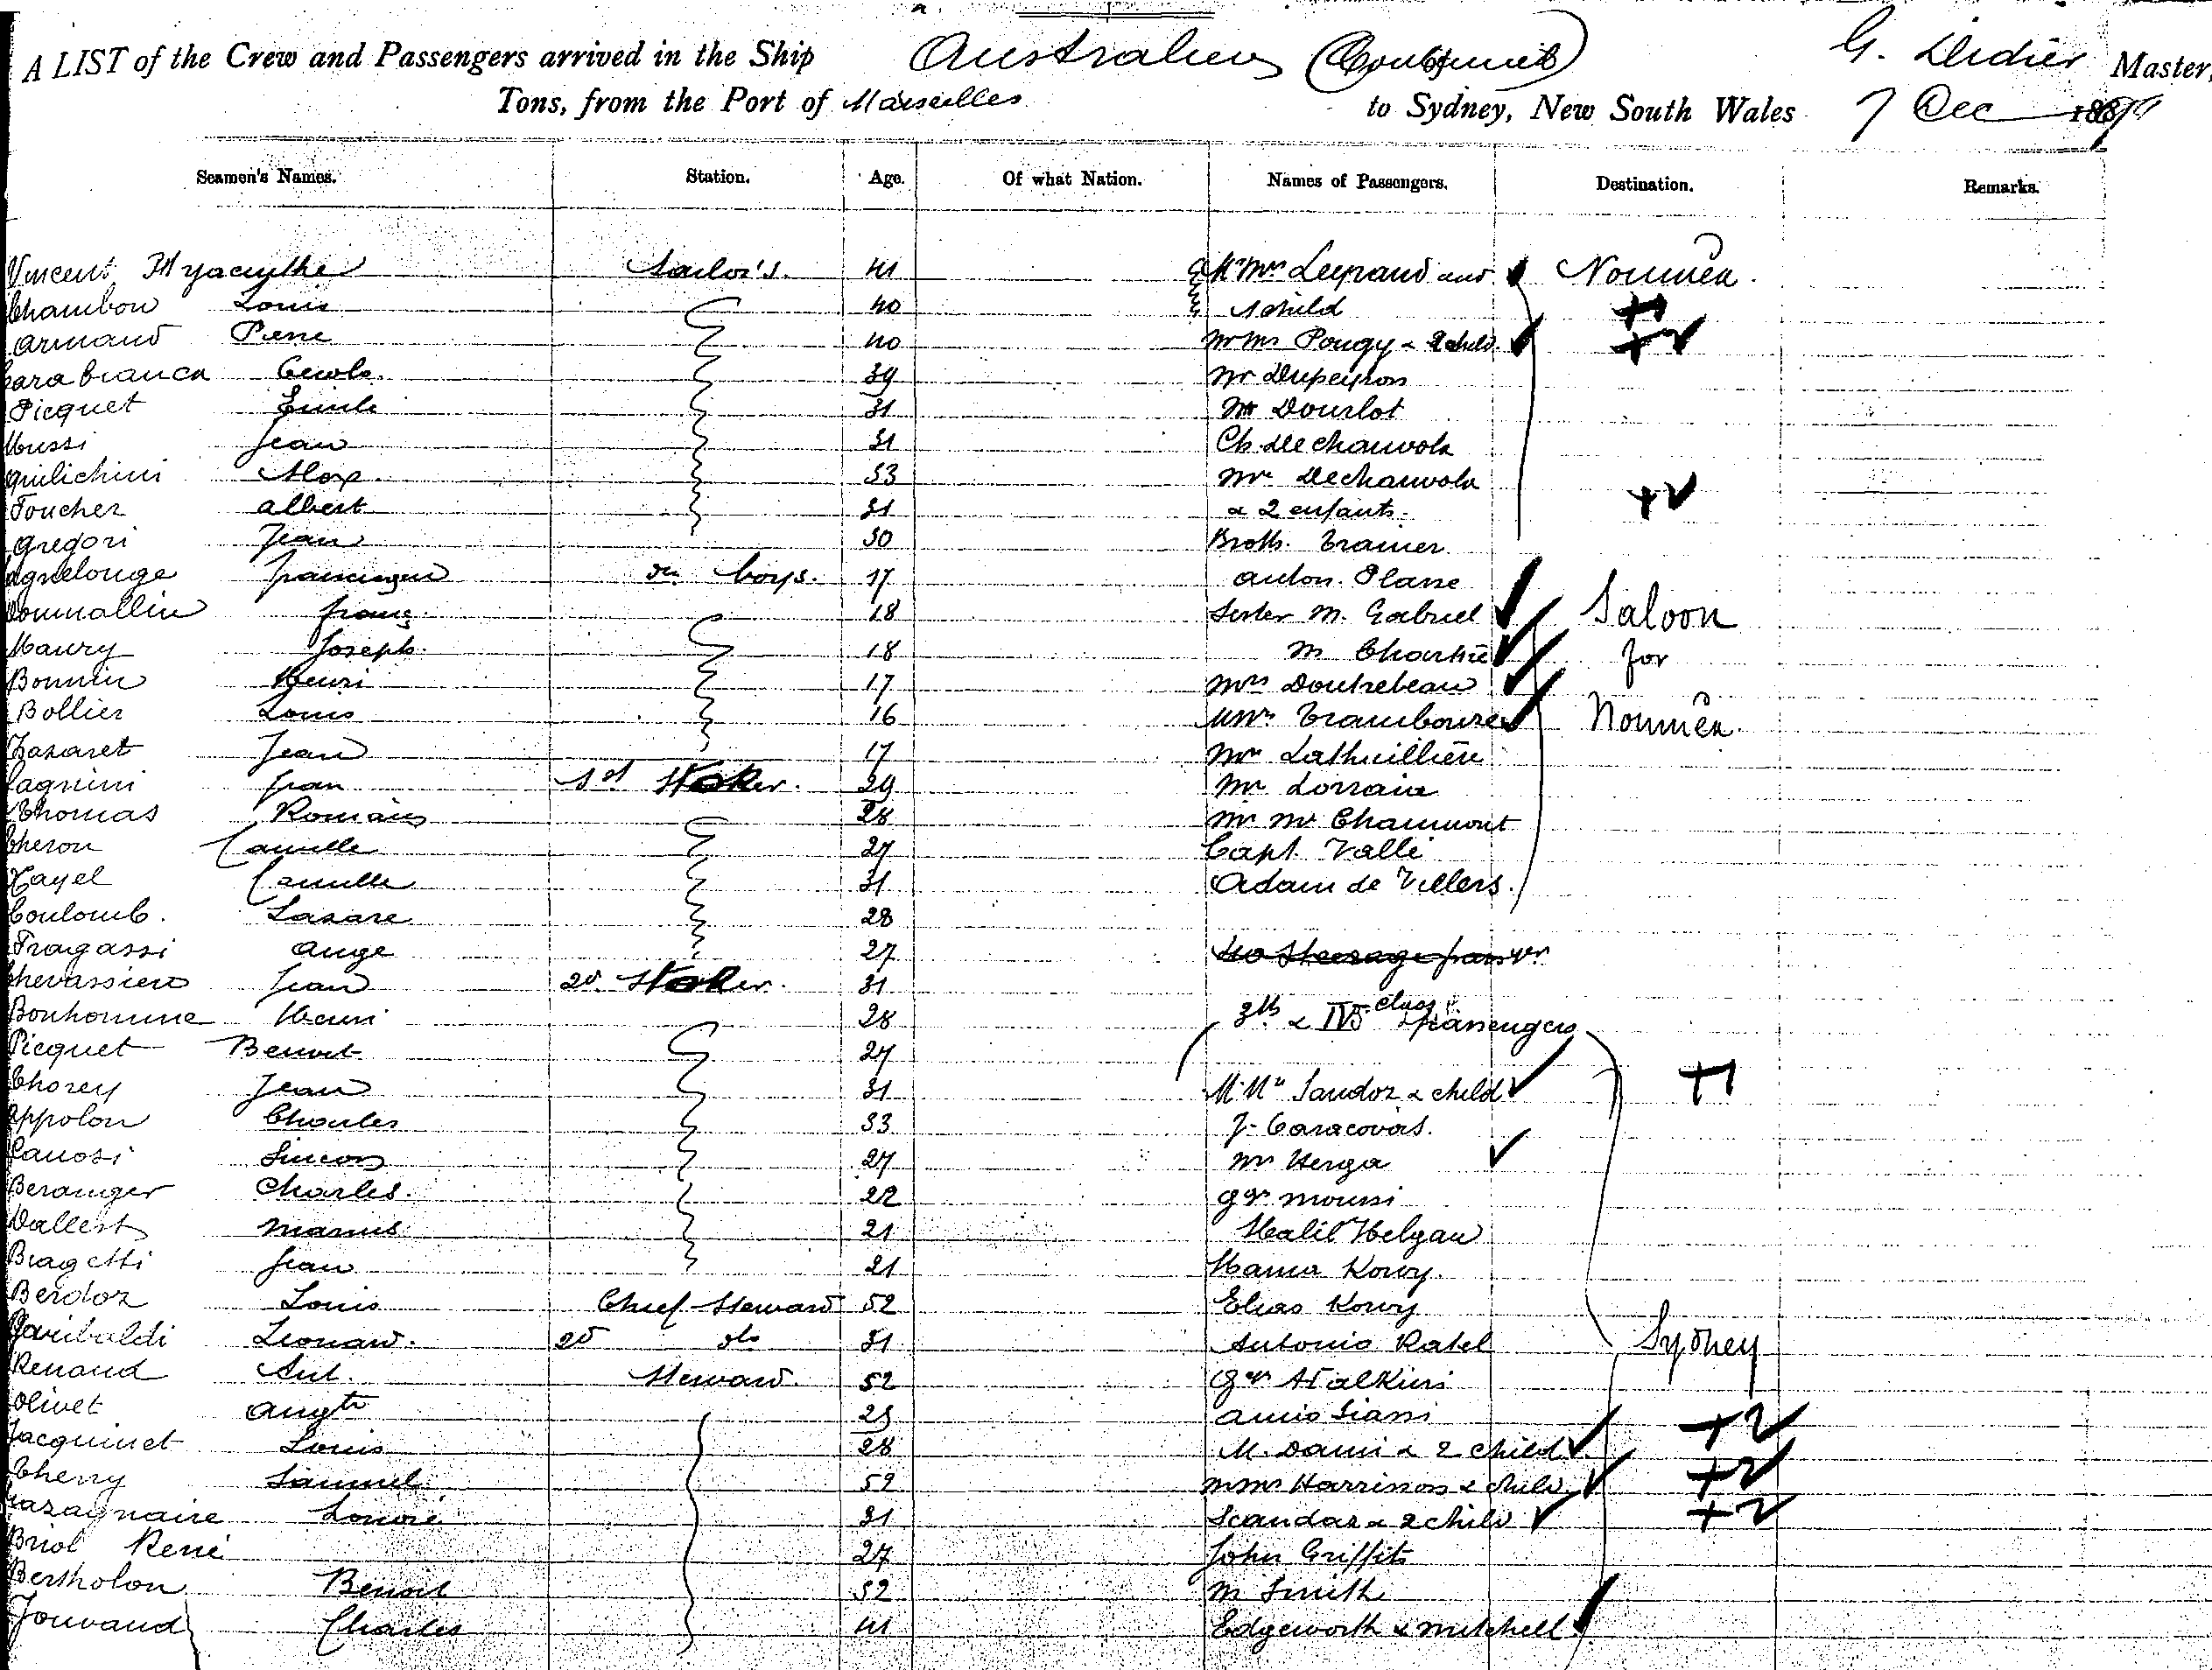 A LIST of the Crew and Passengers arrived in the Ship Australien (Continued) G. Didier Master,
Tons, from the Port of Marseilles to Sydney, New South Wales 7 Dec 1889
Seamen's Names. Station. Age. Of what Nation. Names of Passengers. Destination. Remarks.
Vincent Hyacynthe Sailor's. 41 Mr Mrs Legrand and Nouméa.
Chambon Louis 40 1 child
Armand Pierre 40 Mr Mrs Pougy & 2 child.
Carabianca 39 Mr Dupeyron
Picquet Emile 31 Mr Dourlot
Mussi Jean 31 Ch. Dechauvola
Giulichini Alex. 33 Mr Dechauvola
Foucher Albert 31 & 2 enfants.
Gregori Jean 30 Broth. Tramer
Agnelouge do boys. 17 Anton. Plasse
franç. 18 Sister M. Gabriel Saloon
Maury Joseph. 18 M for
Bonnin Henri 17 Mrs Doutrebeau
Bollier Louis 16 Trambouze Nouméa.
Lazaret Jean 17 Mr Lathuillière
Pagnini Jean 1st Stoker. 29 Mr Lorrain
Thomas Romain 28 Mr Mr Chaumont
Theron Camille 27 Capt. Valli
Camille 31 Adam de Villers.
Coulomb. Lazare 28
Fragassi Ange 27 No Steerage
Jean 2d Stoker. 31
Bonhomme Henri 28 3th & IVth class passengers
Picquet Benoit 27
Thorey Jean 31 M. Mrs Sandoz & child
Appolon Charles 33 J. Caracovois.
Canosi Simeon 27 Mr Herga
Beranger Charles. 22 Gr Moussi
Dallest Marius 21 Halil Helgau
Bragetti Jean 21 Hama Kowy.
Berdoz Louis Chief Steward 52 Elias Kowy
Garibaldi Leonard. 2d do 31 Antonio Ratel
Renaud Ant. Steward. 52 Sydney
Olivet Augte 25
Jacquinet Louis 28 M. Dami & 2 child
Cherry Samuel 52 Mr Mrs Harrisson & child.
31 Scandar & 2 child
Briol René 27 John Griffits
Bertholon Benoit 52 M Smith
Jouvaud Charles 41 Edgeworth & Mitchell.